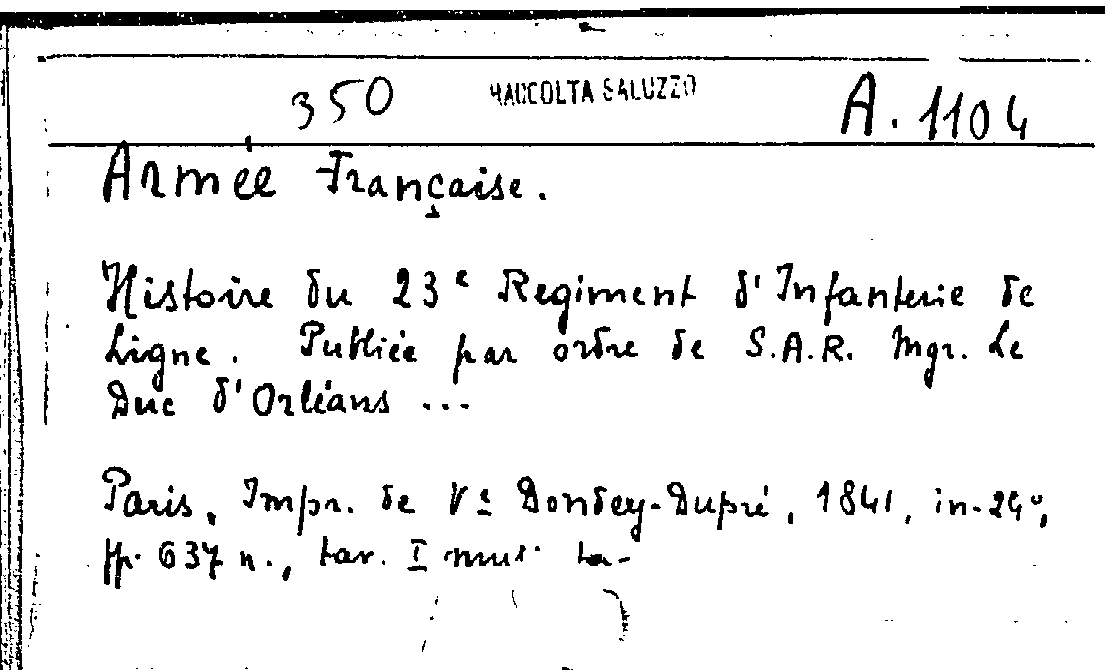 350 RACCOLTA SALUZZO A. 1104
Armée Française.
Histoire du 23e Regiment d'Infanterie de
Ligne. Publiée par ordre de S.A.R. Mgr. Le
Duc d'Orléans ...
Paris, Impr. de Ve Dondey-Dupré, 1841, in-24°,
pp. 637 n., tav. I